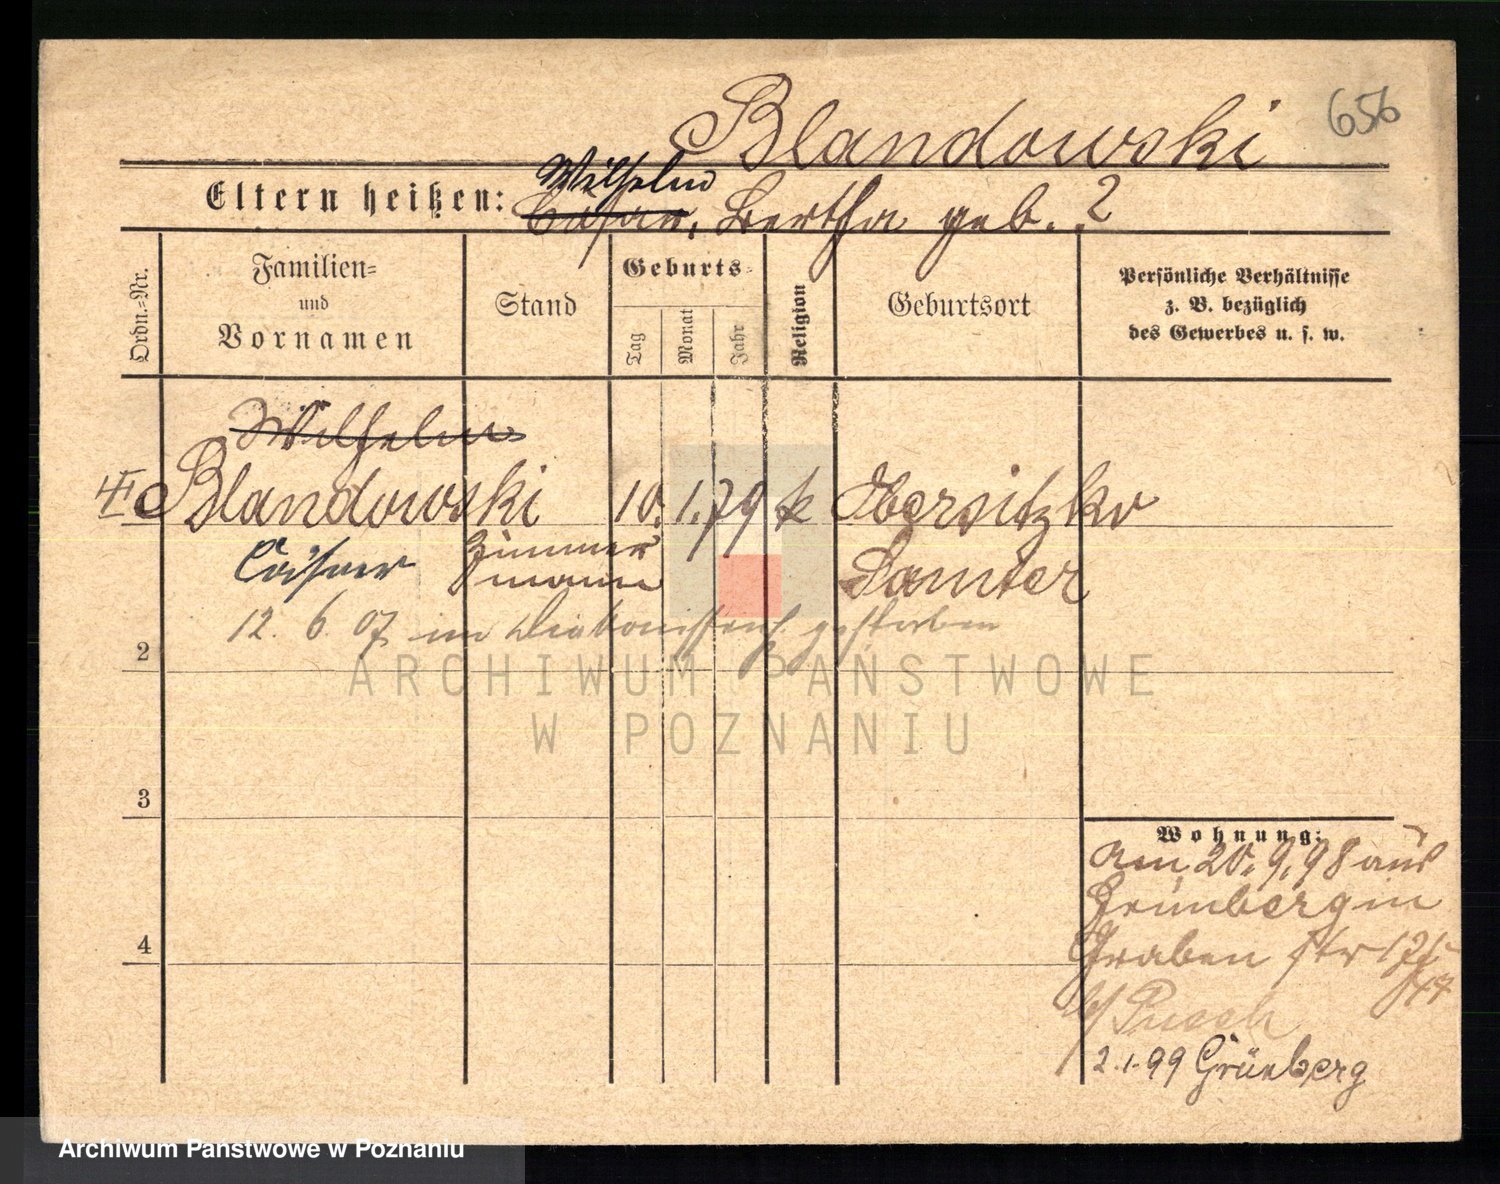 Blandowski 656
Wilhelm
Eltern heißen: Cäsar, Bertha geb. ?
Ordn.-Nr.
Familien- und Vornamen
Stand
Geburts-
Tag
Monat
Jahr
Religion
Geburtsort
Persönliche Verhältnisse
z. B. bezüglich
des Gewerbes u. s. w.
Wilhelm
Blandowski 10. 1. 79 k Obersitzko
Cäsar Zimmer Samter
mann
12. 6. 07 im gestorben
2
ARCHIWUM PAŃSTWOWE
W POZNANIU
3
Wohnung:
am 20. 9. 98 aus
Grünberg in
4
Graben str
b/
2. 1. 99 Grünberg
Archiwum Państwowe w Poznaniu